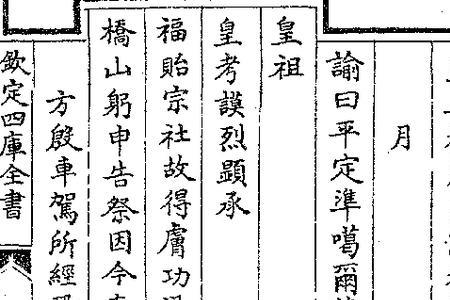 月
諭曰平定準噶爾
皇祖
皇考謨烈顯承
福貽宗社故得膚功
橋山躬申告祭因今
方殷車駕所經
欽定四庫全書